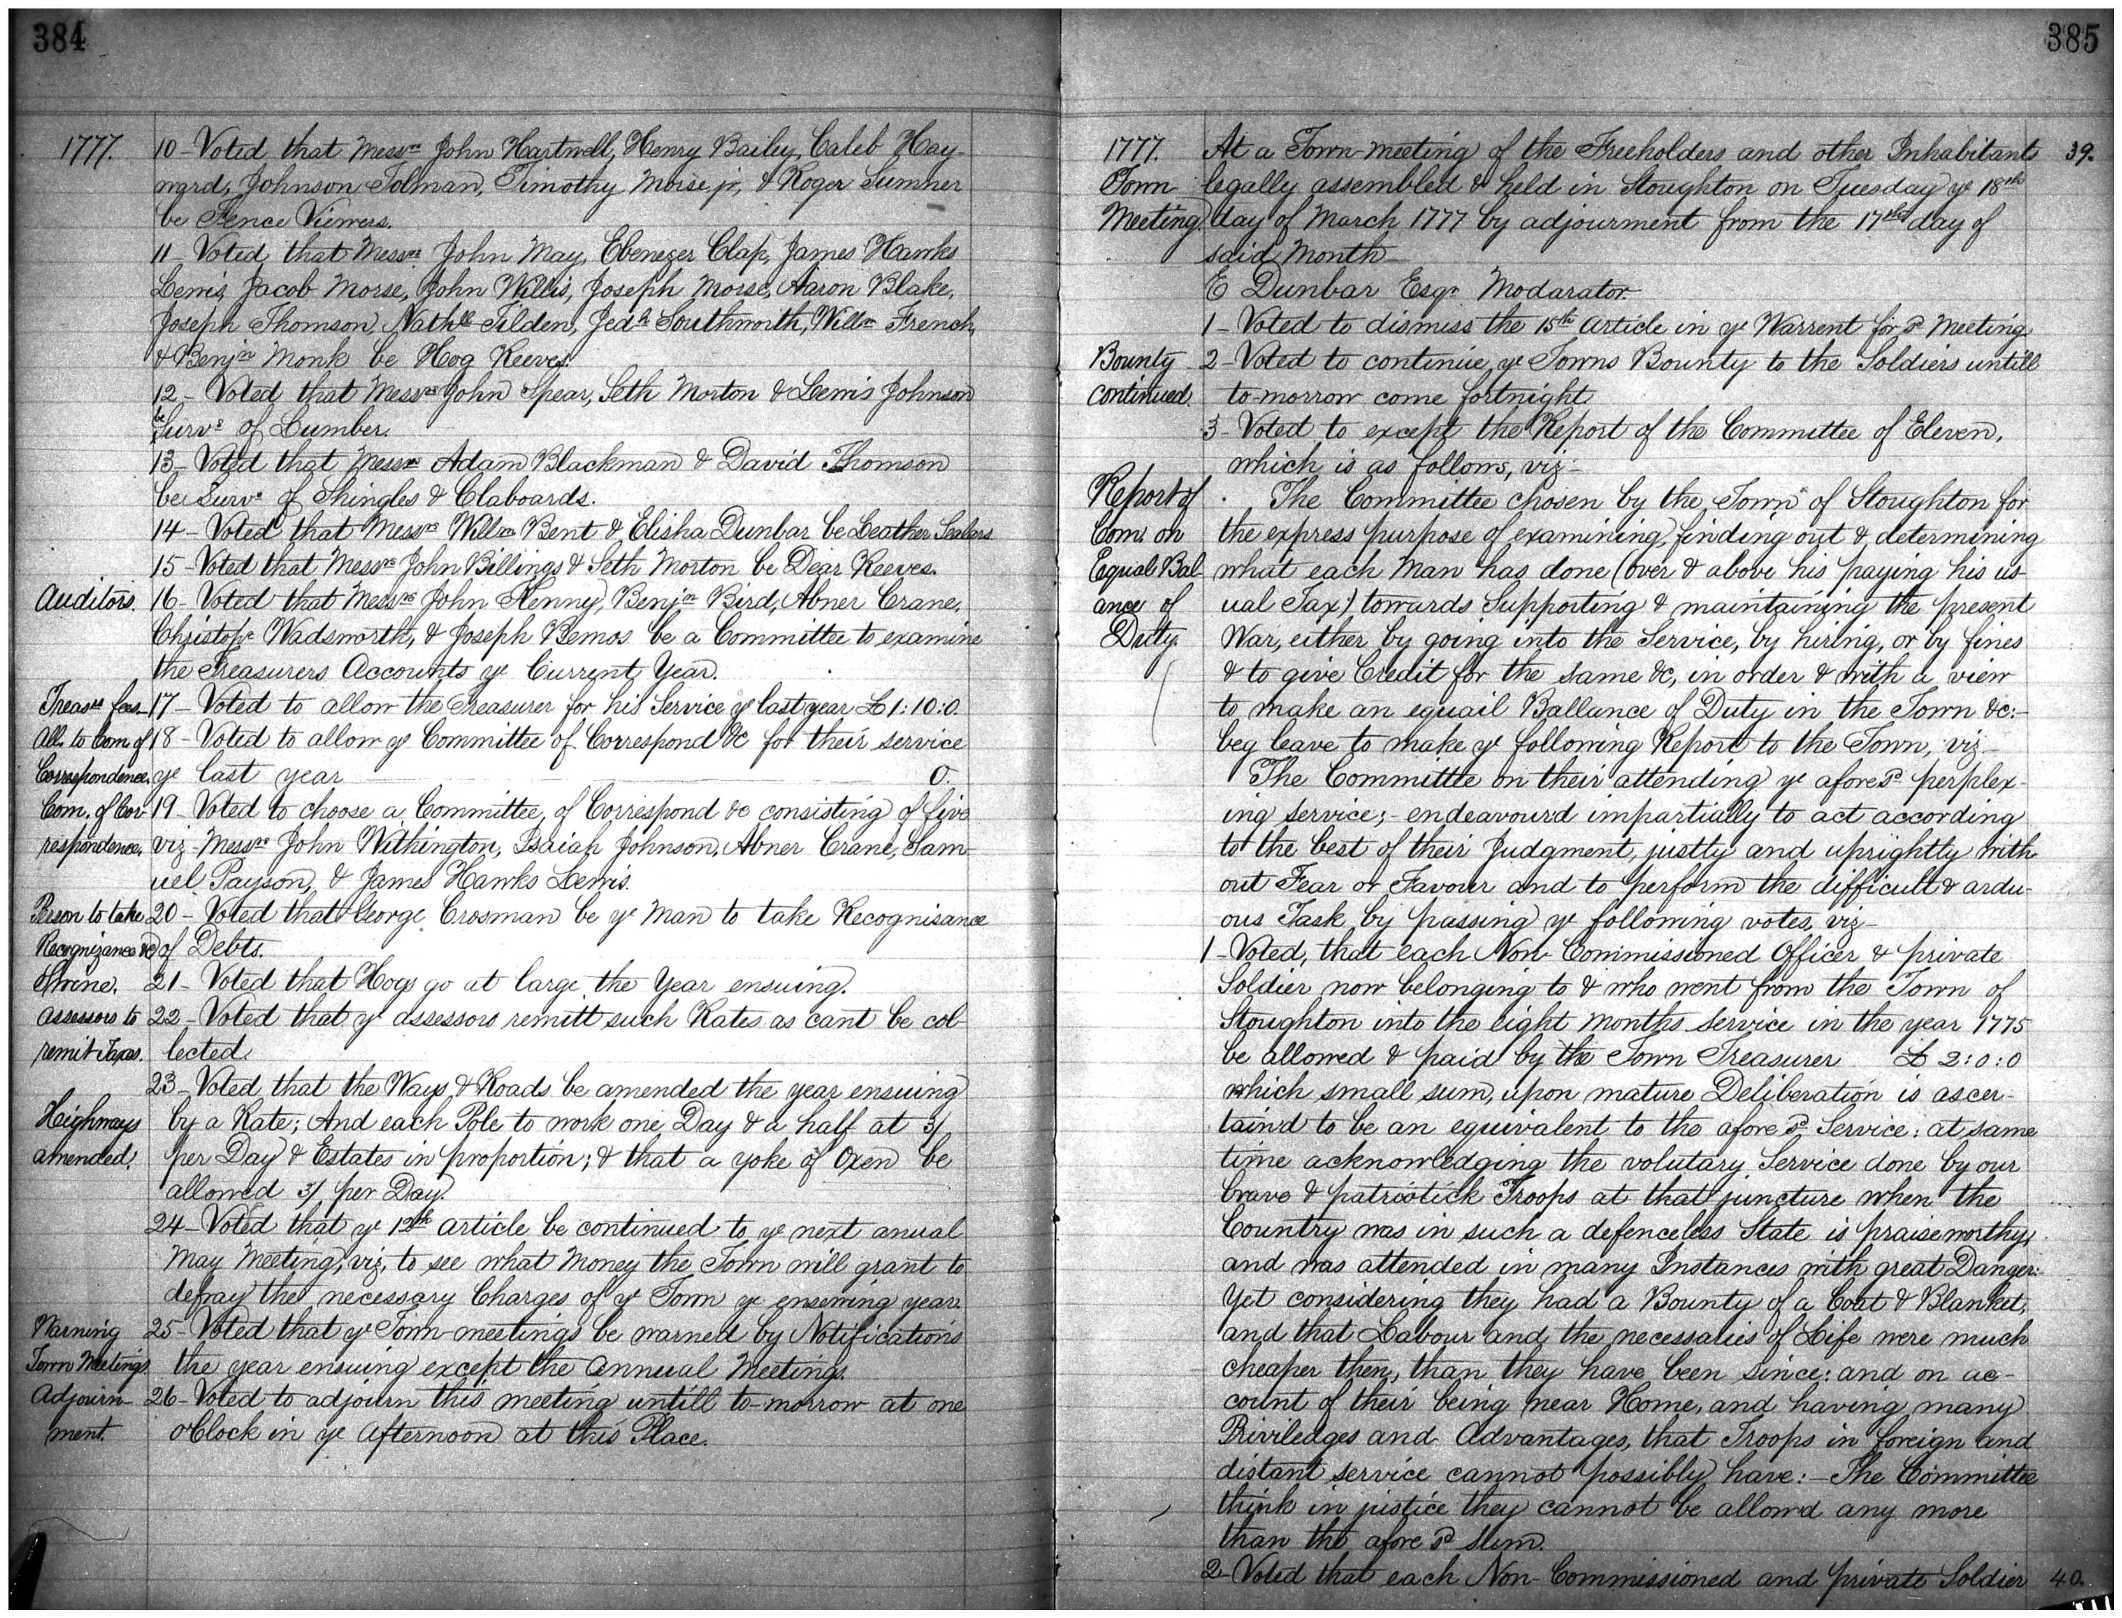 384
1777.
10 - Voted that Messrs John Hartwell, Henry Bailey, Caleb Hay-
ward, Johnson Tolman, Timothy Morse jr, & Roger Sumner
be Fence Viewers.
11 - Voted that Messrs John May, Ebenezer Clap, James Hawks
Lewis, Jacob Morse, John Willis, Joseph Morse, Aaron Blake,
Joseph Thomson, Nathll Tilden, Jedh Southworth, Willm French,
& Benjn Monk be Hog Reeves.
12 - Voted that Messrs John Spear, Seth Morton & Lewis Johnson
be Survs of Lumber.
13 - Voted that Messrs Adam Blackman & David Thomson
be Survs of Shingles & Claboards.
14 - Voted that Messrs Willm Bent & Elisha Dunbar be Leather Sealers
15 - Voted that Messrs John Billings & Seth Morton be Dear Reeves.
Auditors. 16 - Voted that Messrs John Kenny, Benjn Bird, Abner Crane,
Christopr Wadsworth, & Joseph Bemos be a Committee to examine
the Treasurers Accounts ye Current Year.
Treasrs fees 17 - Voted to allow the Treasurer for his Service ye last year £1:10:0.
All. to Com of 18 - Voted to allow ye Committee of Correspond &c for their service
Correspondence. ye last year 0.
Com. of Cor- 19 - Voted to choose a Committee of Correspond &c consisting of five
respondence. viz - Messrs John Withington, Isaiah Johnson, Abner Crane, Sam-
uel Payson, & James Hawks Lewis.
Person to take 20 - Voted that George Crosman be ye Man to take Recognisance
Recognizance &c of Debts.
Swine. 21 - Voted that Hogs go at large the Year ensuing.
Assessors to 22 - Voted that ye assessors remitt such Rates as cant be col-
remit Taxes. lected.
23 - Voted that the Ways & Roads be amended the year ensuing
Heighways by a Rate; And each Pole to work one Day & a half at 3/
amended. per Day & Estates in proportion; & that a yoke of Oxen be
allowed 3/ per Day.
24 - Voted that ye 12th article be continued to ye next anual
May Meeting, viz, to see what Money the Town will grant to
defray the necessary Charges of ye Town ye ensewing year.
Warning 25 - Voted that ye Town-meetings be warned by Notifications
Town Meetings. the year ensuing except the annual Meetings.
Adjourn- 26 - Voted to adjourn this meeting untill to-morrow at one
ment. oClock in ye Afternoon at this Place.
385
1777. At a Town-meeting of the Freeholders and other Inhabitants 39.
Town legally assembled & held in Stoughton on Tuesday ye 18th
Meeting. day of March 1777 by adjourment from the 17th day of
said Month
E Dunbar Esqr Modarator.
1 - Voted to dismiss the 15th article in ye Warrent for sd Meeting
Bounty 2 - Voted to continue ye Towns Bounty to the Soldiers untill
continued. to-morrow come fortnight
3 - Voted to except the Report of the Committee of Eleven,
which is as follows, viz -
Report of The Committee chosen by the Town of Stoughton for
Com. on the express purpose of examining, finding out & determining
Equal Bal- what each Man has done (over & above his paying his us-
ance of ual Tax) towards Supporting & maintaining the present
Duty. War, either by going into the Service, by hiring, or by fines
& to give Credit for the same &c, in order & with a view
to make an equail Ballance of Duty in the Town &c:-
beg leave to make ye following Report to the Town, viz -
The Committe on their attending ye afore sd perplex-
ing service; - endeavour'd impartially to act according
to the best of their Judgment, justly and uprightly with-
out Fear or Favour and to perform the difficult & ardu-
ous Task by passing ye following votes, viz -
1 - Voted, that each Non-Commissioned Officer & private
Soldier now belonging to & who went from the Town of
Stoughton into the eight Months Service in the year 1775
be allowed & paid by the Town Treasurer £ 2:0:0
which small sum, upon mature Deliberation is ascer-
tain'd to be an equivalent to the afore sd Service: at same
time acknowledging the volutary Service done by our
brave & patriotick Troops at that juncture when the
Country was in such a defenceless State is praiseworthy,
and was attended in many Instances with great Danger:
Yet considering they had a Bounty of a Coat & Blanket,
and that Labour and the necessaries of Life were much
cheaper then, than they have been since: and on ac-
count of their being near Home, and having many
Priviledges and Advantages, that Troops in foreign and
distant service cannot possibly have: - The Committee
think in justice they cannot be allow'd any more
than the afore sd sum.
2 - Voted that each Non-Commissioned and private Soldier 40.